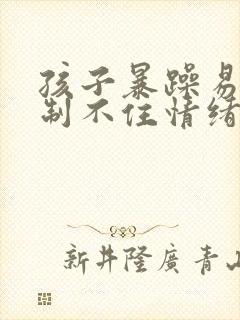 孩子暴躁易
制不住情绪
新井隆廣 青山